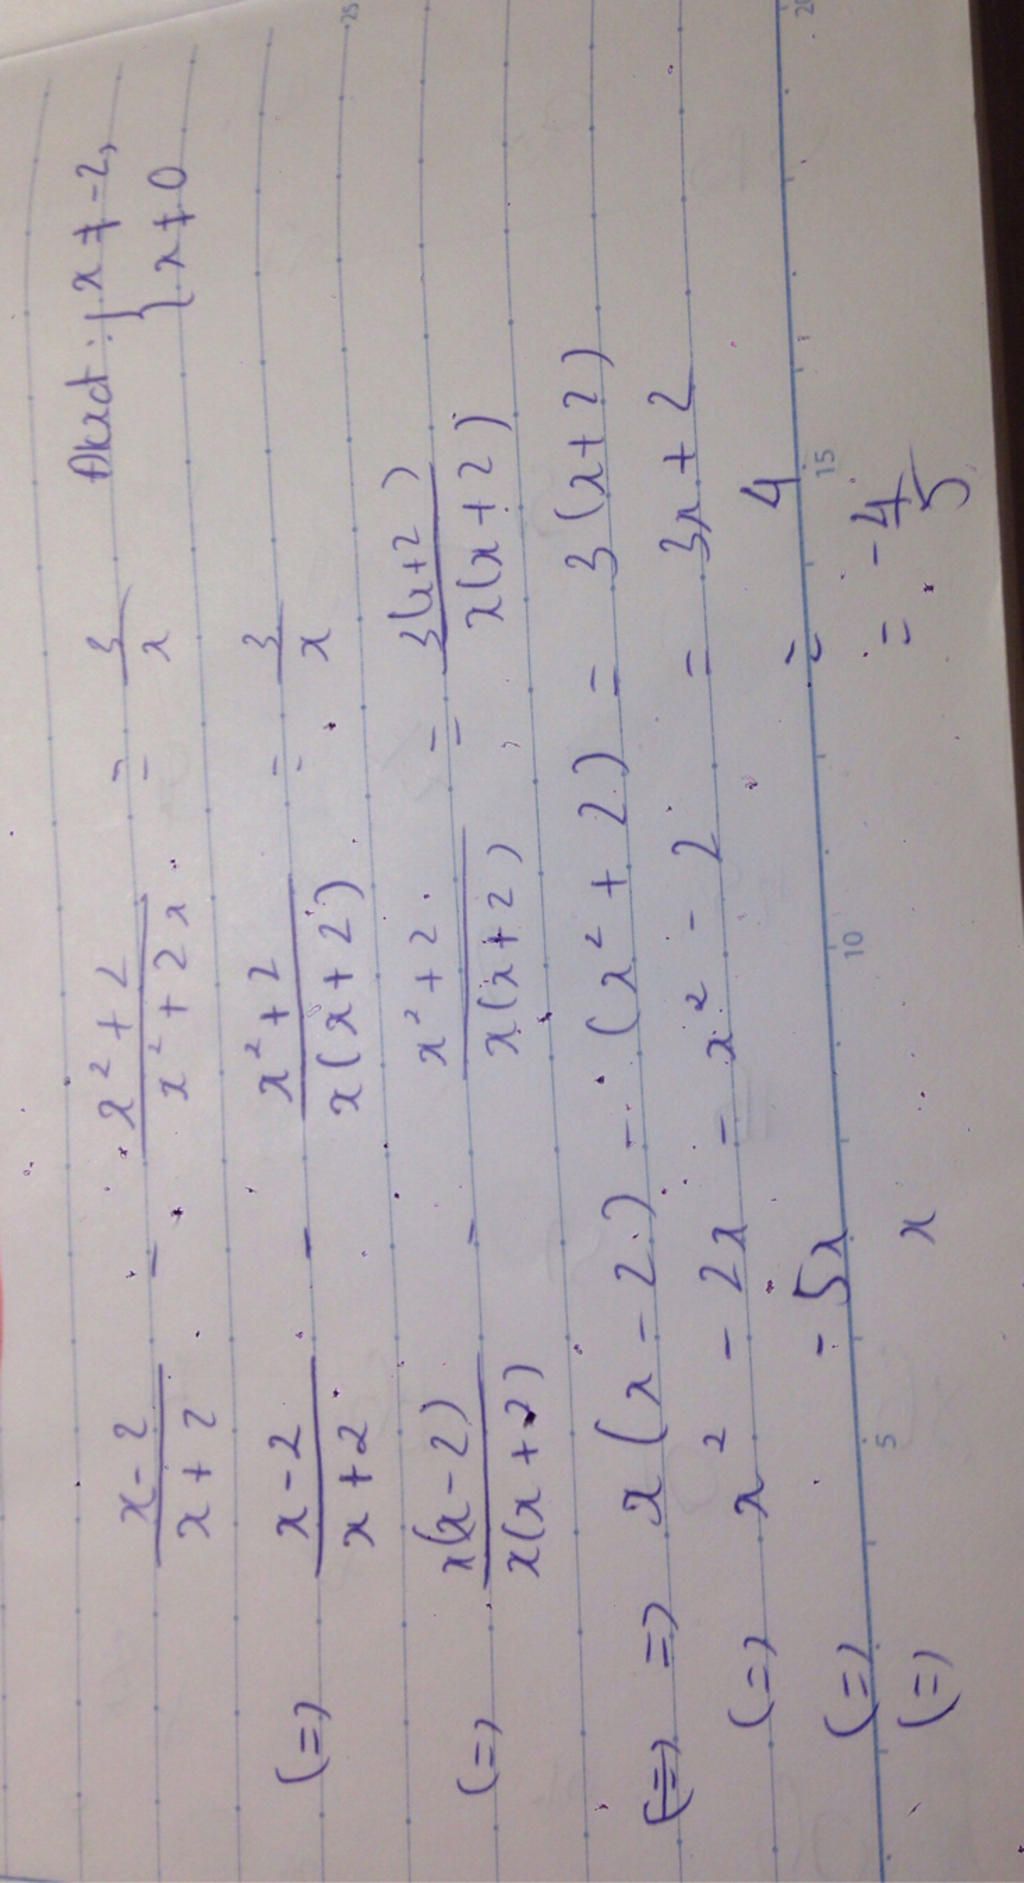 x-2/x+2 - x²+2/x²+2x = 3/x Đkxđ: { x ≠ -2, x ≠ 0
(=) x-2/x+2 - x²+2/x(x+2) = 3/x
(=) x(x-2)/x(x+2) - x²+2/x(x+2) = 3(x+2)/x(x+2)
=) x(x-2) - (x²+2) = 3(x+2)
(=) x² - 2x - x² - 2 = 3x+2
(=) -5x = 4
(=) x = -4/5
5
10
15
20
25